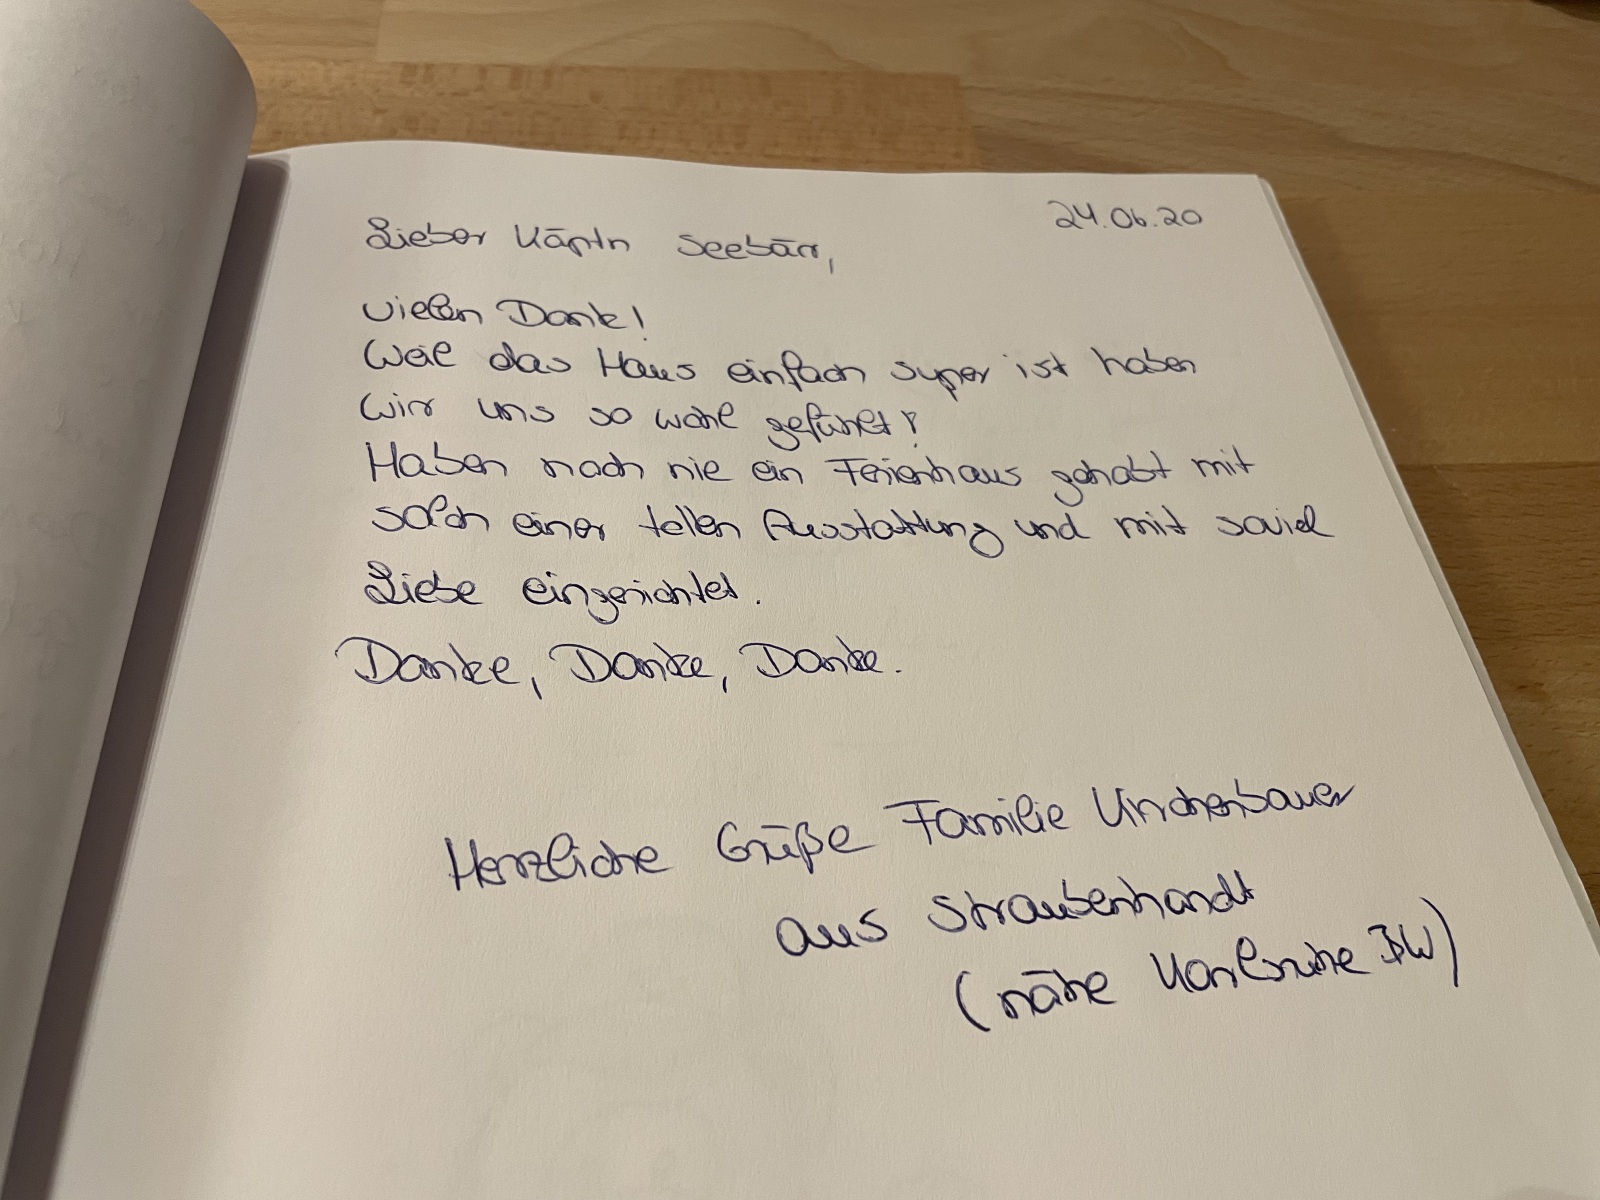 24.06.20
Lieber Käptn Seebär,
vielen Dank!
Weil das Haus einfach super ist haben
wir uns so wohl gefühlt!
Haben noch nie ein Ferienhaus gehabt mit
solch einer tollen Ausstattung und mit soviel
Liebe eingerichtet.
Danke, Danke, Danke.
Herzliche Grüße Familie Kirchenbauer
aus Straubenhardt
(nähe Karlsruhe BW)